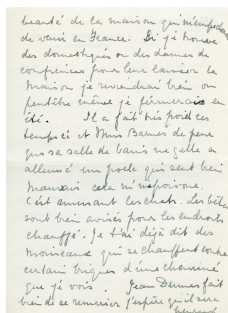 beauté de la maison qui m'empêche
de venir en France. Si je trouve
des domestiques ou des dames de
confiances pour leur laisser la
maison je reviendrai bien ou
peutêtre même je fermerais en
été. Il a fait très froid ces
temps ci et Mms Barnes de peur
que sa salle de bains ne gelle a
allumé un poele qui sent bien
mauvais cela m'empoisonne.
C'est amusant les chats. Les bêtes
sont bien avisés pour les endroits
chauffé. Je t'ai déjà dit des
moineaux qui se chauffent contre
certain briques d'une cheminée
que je vois. Jean fait
bien de se remarier j'espère qu'il sera